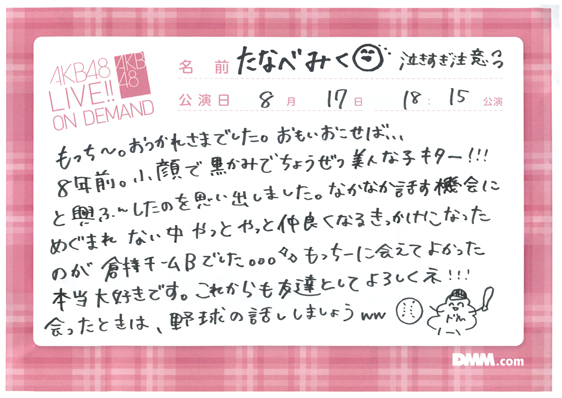 AKB48
LIVE!!
ON DEMAND
AKB
48
名前 たなべみく 泣きすぎ注意
公演日 8月 17日 18:15 公演
もっち〜。おつかれさまでした。おもいおこせば、、、
8年前。小顔で黒かみでちょうぜつ美人な子キター!!!
と興ふ〜んしたのを思い出しました。なかなか話す機会に
めぐまれ ない中 やっとやっと仲良くなるきっかけになった
のが 倉持チームBでした。。。 もっちーに会えてよかった
本当大好きです。これからも友達としてよろしくネ!!!
会ったときは、野球の話ししましょうww
DMM.com